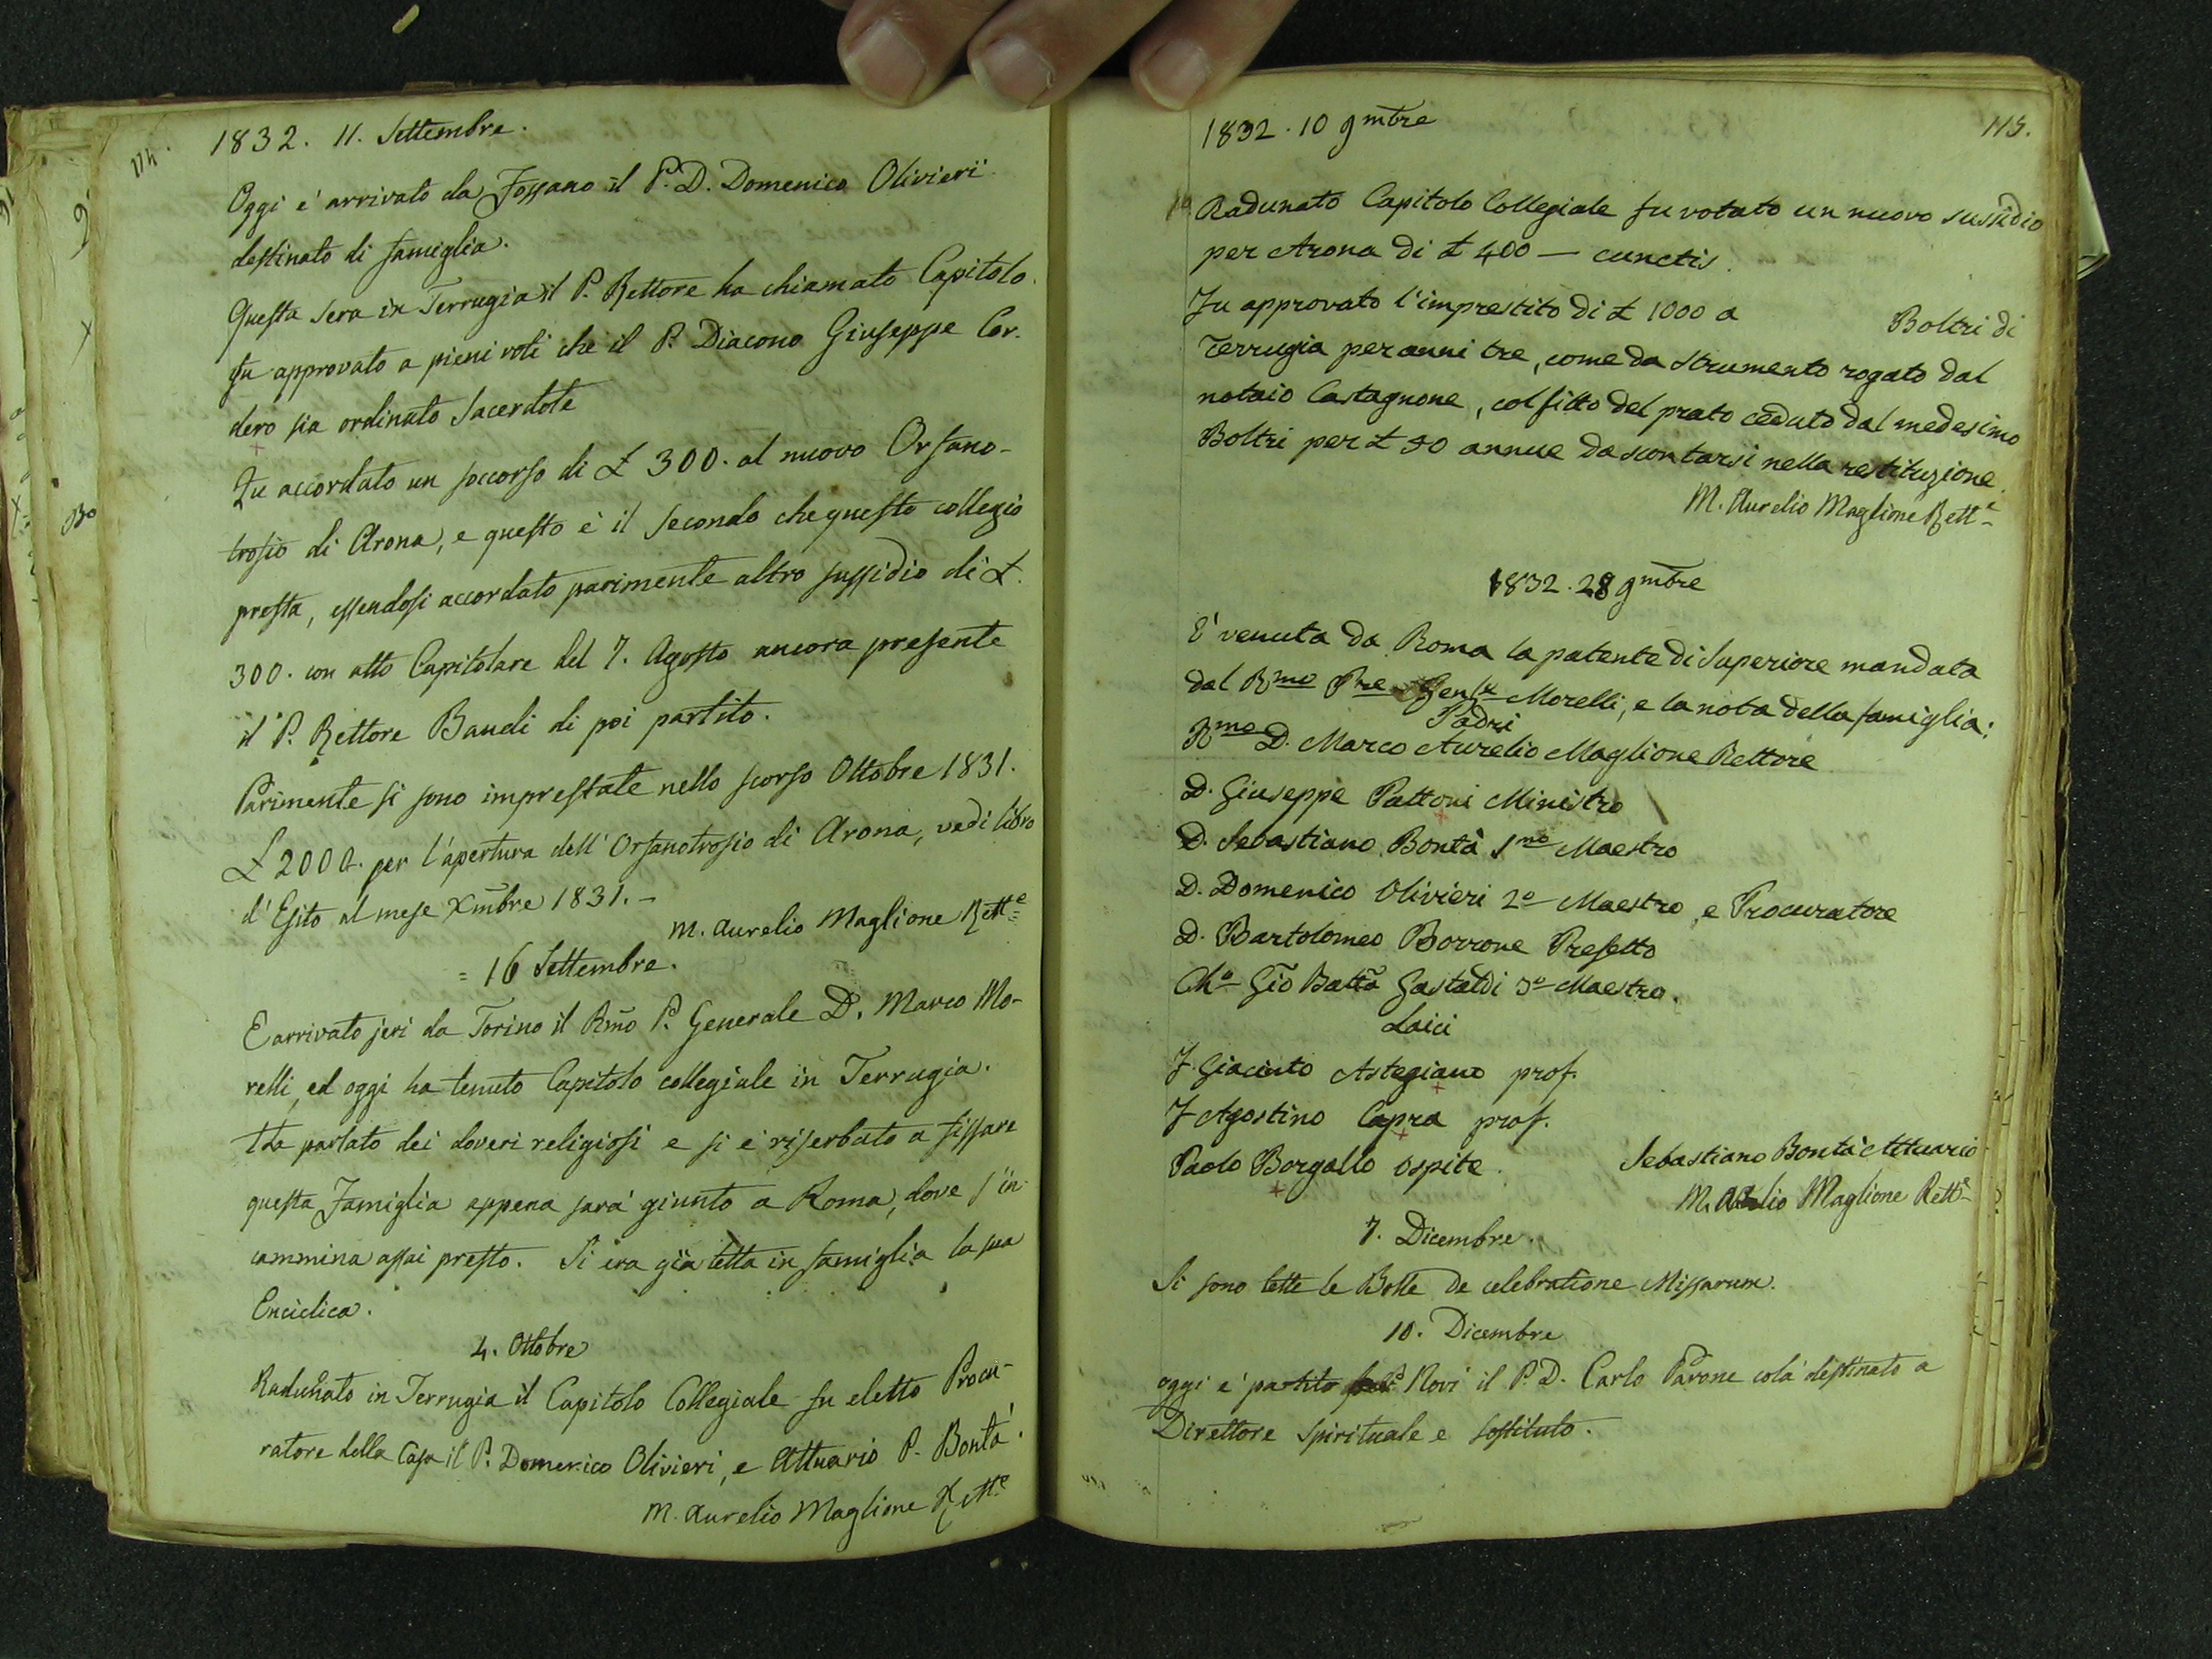 114.
1832. 11. Settembre.
Oggi e' arrivato da Fossano il P. D. Domenico Olivieri
destinato di famiglia.
Questa sera in Terrugia il P. Rettore ha chiamato Capitolo.
Fu approvato a pieni voti che il P. Diacono Giuseppe Cor-
dero sia ordinato Sacerdote
Fu accordato un soccorso di £ 300. al nuovo Orfano-
trofio di Arona, e questo è il secondo che questo collegio
presta, essendosi accordato parimente altro sussidio di £.
300. con atto Capitolare del 7. Agosto ancora presente
il P. Rettore Baudi di poi partito.
Parimente si sono imprestate nello scorso Ottobre 1831.
£ 2000. per l'apertura dell'Orfanotrofio di Arona, vedi libro
d'Esito al mese Xmbre 1831. -
M. Aurelio Maglione Rett.e
= 16 Settembre.
E arrivato jeri da Torino il Rmo P. Generale D. Marco Mo-
relli, ed oggi ha tenuto Capitolo collegiale in Terrugia.
Ha parlato dei doveri religiosi e si e' riserbato a fissare
questa Famiglia appena sarà giunto a Roma, dove s'in-
cammina assai presto. Si era già letta in famiglia la sua
Enciclica.
4. Ottobre
Radunato in Terrugia il Capitolo Collegiale fu eletto Procu-
ratore della Casa il P. Domenico Olivieri, e Attuario P. Bontà.
M. Aurelio Maglione Rett.e
115.
1832. 10 9mbre
Radunato Capitolo Collegiale fu votato un nuovo sussidio
per Arona di £ 400 — cunctis.
Fu approvato l'imprestito di £ 1000 a Boltri di
Terrugia per anni tre, come da strumento rogato dal
notaio Castagnone, col fitto del prato ceduto dal medesimo
Boltri per £ 50 annue da scontarsi nella restituzione.
M. Aurelio Maglione Rett.e
1832. 28 9mbre
E' venuta da Roma la patente di Superiore mandata
dal Rmo Pre Genle Morelli, e la nota della famiglia:
Padri
Rmo D. Marco Aurelio Maglione Rettore
D. Giuseppe Pattoni Ministro
D. Sebastiano Bontà 1mo Maestro
D. Domenico Olivieri 2o Maestro, e Procuratore
D. Bartolomeo Borrone Prefetto
Cho Gio Batta Gastaldi 3o Maestro.
Laici
F. Giacinto Astegiano prof.
F. Agostino Capra prof.
Paolo Borgallo ospite.
Sebastiano Bontà Attuario
M. Aurelio Maglione Rett.e
7. Dicembre.
Si sono lette le Bolle de celebratione Missarum.
10. Dicembre
oggi e' partito per Novi il P. D. Carlo Pavone colà destinato a
Direttore Spirituale e sostituto.